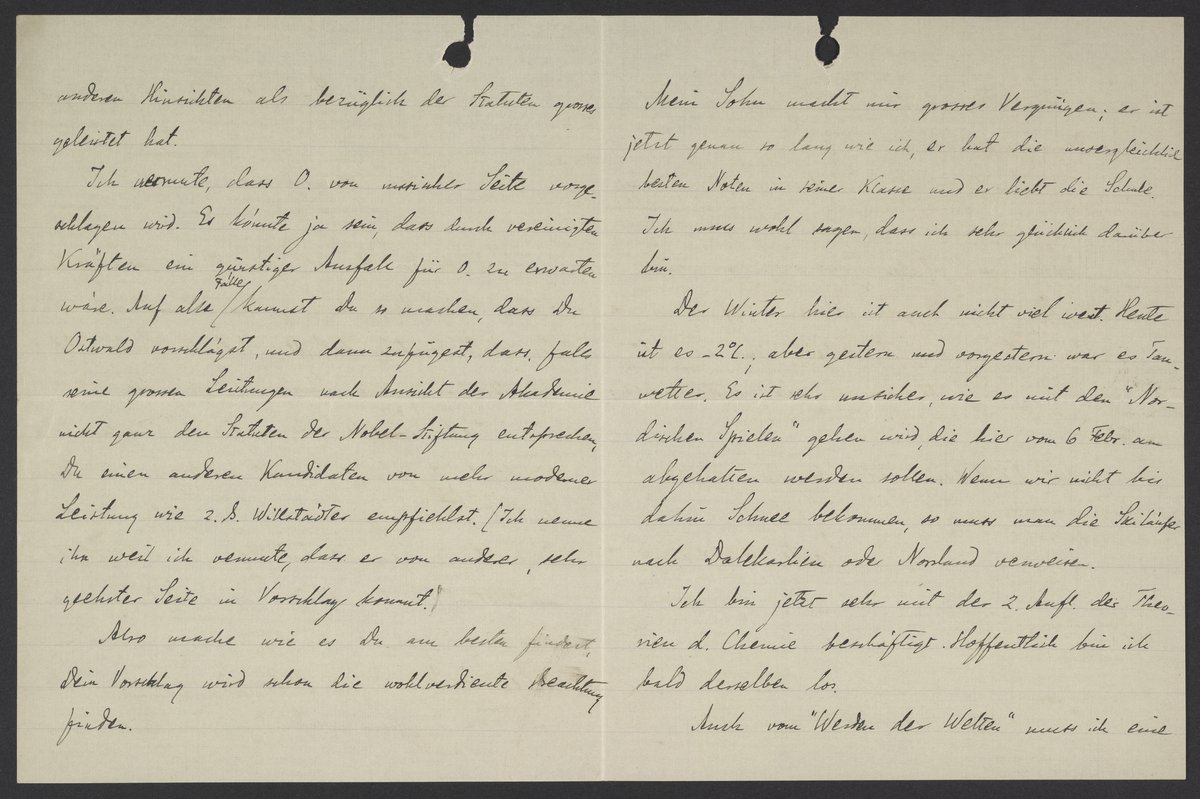 anderen Hinsichten als bezüglich der Statuten grosses
geleistet hat.
Ich vermute, dass O. von russischer Seite vorge-
schlagen wird. Es könnte ja sein, dass durch vereinigten
Kräften ein günstiger Ausfall für O. zu erwarten
wäre. Auf alle Fälle kannst Du so machen, dass Du
Ostwald vorschlägst, und dann zufügest, dass, falls
seine grossen Leistungen nach Ansicht der Akademie
nicht ganz den Statuten der Nobel-Stiftung entsprechen,
Du einen anderen Kandidaten von mehr moderner
Leistung wie z. B. Willstädter empfiehlst. (Ich nenne
ihn weil ich vermute, dass er von anderer, sehr
geehrter Seite in Vorschlag kommt.)
Also mache wie es Du am besten findest,
Dein Vorschlag wird schon die wohlverdiente Beachtung
finden.
Mein Sohn macht mir grosses Vergnügen; er ist
jetzt genau so lang wie ich, er hat die unvergleichlich
besten Noten in seiner Klasse und er liebt die Schule.
Ich muss wohl sagen, dass ich sehr glücklich darüber
bin.
Der Winter hier ist auch nicht viel wert. Heute
ist es -2°C., aber gestern und vorgestern war es Tau-
wetter. Es ist sehr unsicher, wie es mit den "Nor-
dischen Spielen" gehen wird, die hier vom 6 Febr. an
abgehalten werden sollen. Wenn wir nicht bis
dahin Schnee bekommen, so muss man die Skiläufer
nach Dalekarlien oder Norrland verweisen.
Ich bin jetzt sehr mit der 2. Aufl. der Theo-
rien d. Chemie beschäftigt. Hoffentlich bin ich
bald derselben los.
Auch vom "Werden der Welten" muss ich eine